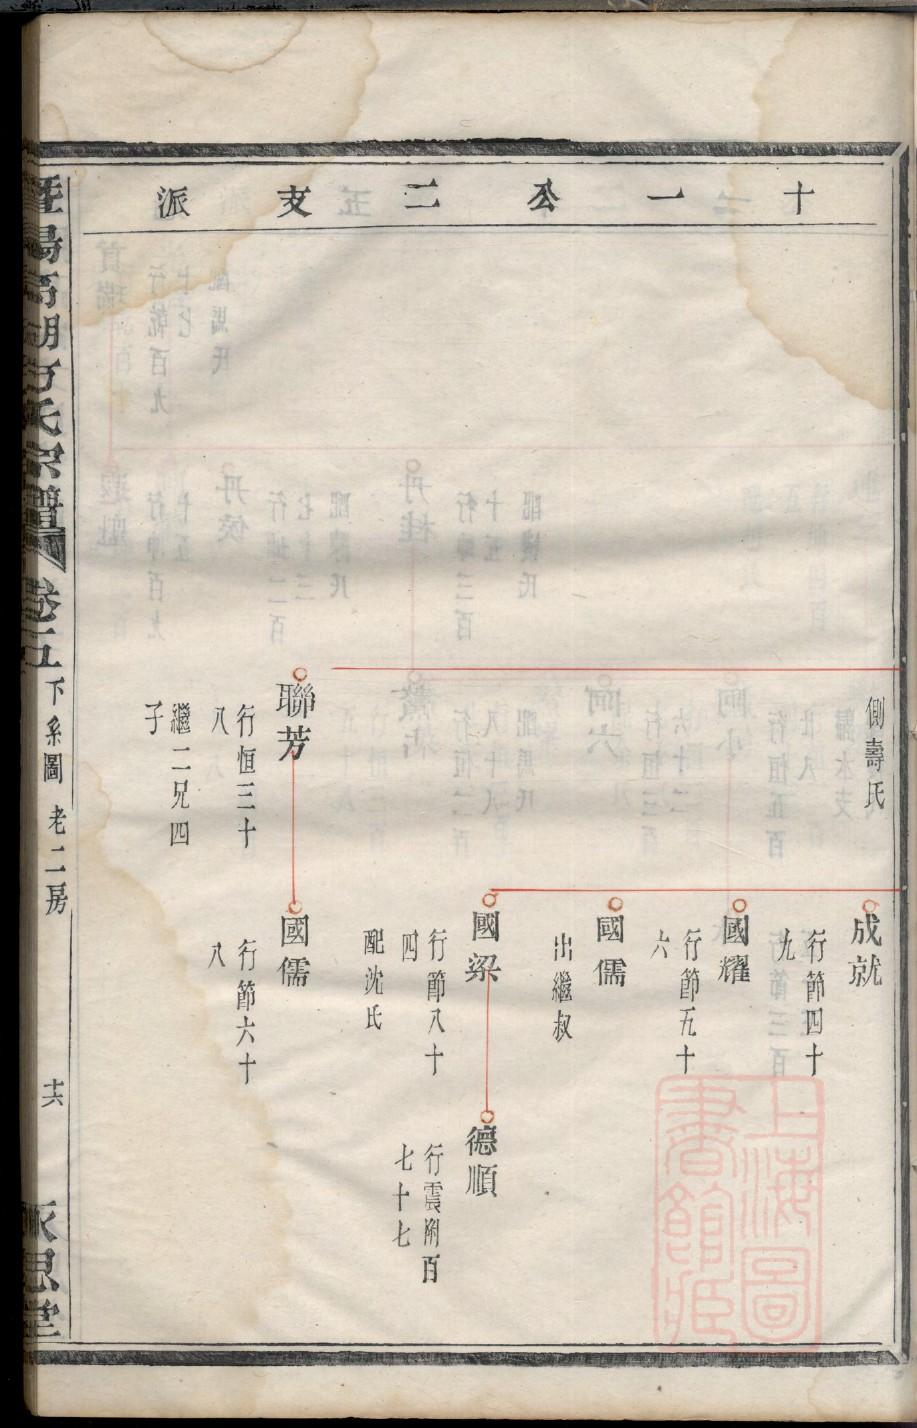 十一公二支派
側壽氏
成就
行節四十
九
國耀
行節五十
六
國儒
出繼叔
國梁
行節八十
四
配沈氏
德順
行震附百
七十七
聯芳
行恒三十
八
繼二兄四
子
國儒
行節六十
八
暨陽高湖方氏宗譜
卷一五
下系圖
老二房
十六
永思堂
上海圖書館藏